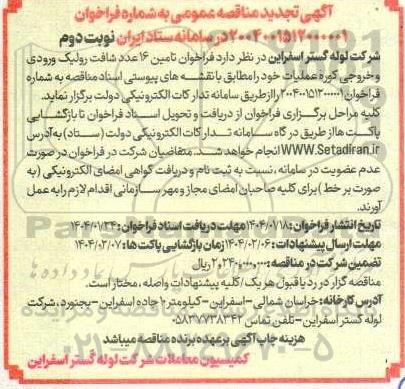 آگهی تجدید مناقصه عمومی به شماره فراخوان
۲۰۰۴۰۰۱۵۱۲۰۰۰۰۰۱ در سامانه ستاد ایران نوبت دوم
شرکت لوله گستر اسفراین در نظر دارد فراخوان تامین ۱۶ عدد شافت رولیک ورودی
و خروجی کوره عملیات خود را مطابق با نقشه های پیوستی اسناد مناقصه به شماره
فراخوان ۲۰۰۴۰۰۱۵۱۲۰۰۰۰۰۱ را از طریق سامانه تدارکات الکترونیکی دولت برگزار نماید.
کلیه مراحل برگزاری فراخوان از دریافت و تحویل اسناد فراخوان تا بازگشایی
پاکت ها از طریق درگاه سامانه تدارکات الکترونیکی دولت (ستاد) به آدرس
WWW.Setadiran.ir انجام خواهد شد. متقاضیان شرکت در فراخوان در صورت
عدم عضویت در سامانه، نسبت به ثبت نام و دریافت گواهی امضای الکترونیکی (به
صورت بر خط) برای کلیه صاحبان امضای مجاز و مهر سازمانی اقدام لازم را به عمل
آورند.
تاریخ انتشار فراخوان: ۱۴۰۴/۰۱/۱۸ مهلت دریافت اسناد فراخوان: ۱۴۰۴/۰۱/۲۴
مهلت ارسال پیشنهادات: ۱۴۰۴/۰۲/۰۶ زمان بازگشایی پاکت ها: ۱۴۰۴/۰۲/۰۷
تضمین شرکت در مناقصه: ۲،۲۴۰،۰۰۰،۰۰۰ ریال
مناقصه گزار در رد یا قبول هر یک / کلیه پیشنهادات واصله، مختار است.
آدرس کارخانه: خراسان شمالی - اسفراین - کیلومتر ۱۰ جاده اسفراین - بجنورد، شرکت
لوله گستر اسفراین - تلفن تماس ۰۵۸۳۷۷۳۸۳۴۲
هزینه چاپ آگهی بر عهده برنده مناقصه میباشد
کمیسیون معاملات شرکت لوله گستر اسفراین